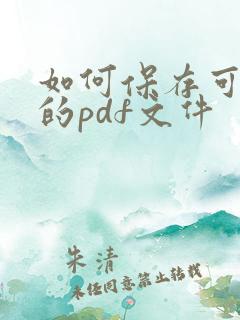 如何保存可
的pdf文件
朱清
未经同意禁止转载